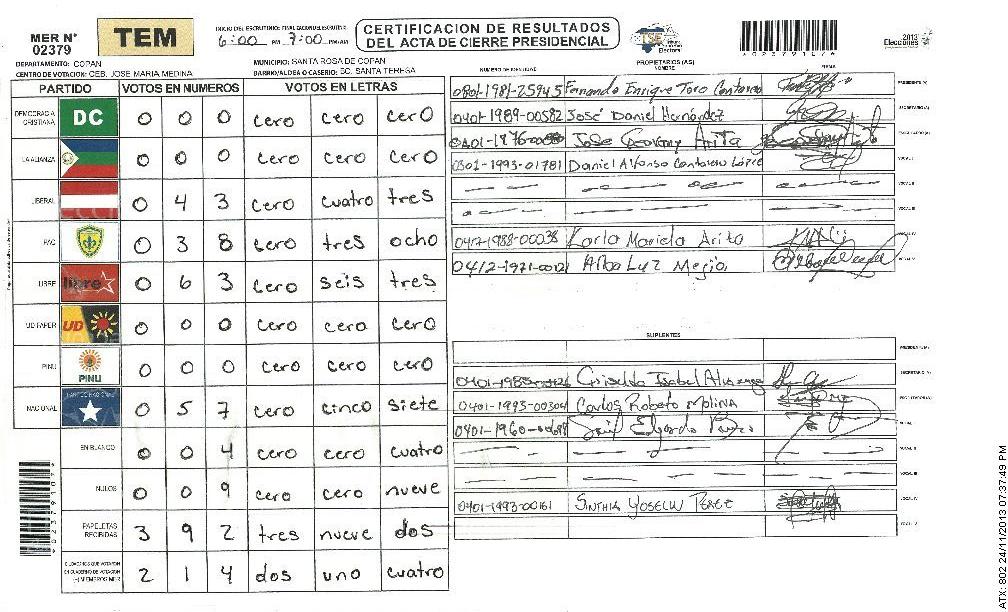 MER N° 02379
TEM
INICIO DEL ESCRUTINIO: FINALIZACION DEL ESCRUTINIO:
6:00 PM 7:00 PM
CERTIFICACION DE RESULTADOS
DEL ACTA DE CIERRE PRESIDENCIAL
TSE
2013
Elecciones
DEPARTAMENTO: COPAN
MUNICIPIO: SANTA ROSA DE COPAN
CENTRO DE VOTACION: CEB. JOSE MARIA MEDINA
BARRIO/ALDEA O CASERIO: BO. SANTA TERESA
PARTIDO VOTOS EN NUMEROS VOTOS EN LETRAS
DEMOCRACIA CRISTIANA DC 0 0 0 cero cero cero
LA ALIANZA 0 0 0 cero cero cero
LIBERAL 0 4 3 cero cuatro tres
PAC 0 3 8 cero tres ocho
LIBRE libre 0 6 3 cero seis tres
UD FAPER UD 0 0 0 cero cero cero
PINU PINU 0 0 0 cero cero cero
NACIONAL 0 5 7 cero cinco siete
EN BLANCO 0 0 4 cero cero cuatro
NULOS 0 0 9 cero cero nueve
PAPELETAS RECIBIDAS 3 9 2 tres nueve dos
CIUDADANOS QUE VOTARON EN CUADERNO DE VOTACION (+) MIEMBROS MER 2 1 4 dos uno cuatro
NUMERO DE IDENTIDAD PROPIETARIOS (AS) NOMBRE FIRMA
0801-1981-25945 Fernando Enrique Toro PRESIDENTE (A)
0401-1989-00582 José Daniel Hernández SECRETARIO (A)
Jose Geovany Arita ESCRUTADOR (A)
0801-1993-01781 Daniel Alfonso Contrero López VOCAL I
VOCAL II
VOCAL III
0417-1988-00038 Karla Mariela Arita VOCAL IV
0412-1971-00121 Alba Luz Mejia VOCAL V
SUPLENTES
PRESIDENTE (A)
Griselda Isabel SECRETARIO (A)
0401-1993-00304 Carlos Roberto Molina ESCRUTADOR (A)
Saúl Edgardo VOCAL I
VOCAL II
VOCAL III
0401-1993-00161 SINTHIA YOSELIN PEREZ VOCAL IV
VOCAL V
0237910?6
ATX: 802 24/11/2013 07:37:49 PM